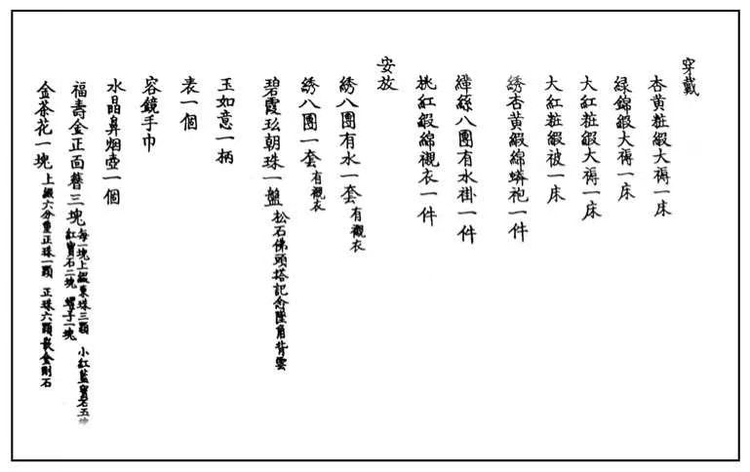 穿戴
杏黄粧緞大褥一床
绿錦緞大褥一床
大紅粧緞大褥一床
大紅粧緞被一床
綉杏黄緞綿蟒袍一件
緙絲八團有水褂一件
桃紅緞綿襯衣一件
安放
綉八團有水一套有襯衣
綉八團一套有襯衣
碧霞玜朝珠一盤松石佛頭塔記念墜角背雲
玉如意一柄
表一個
容鏡手巾
水晶鼻烟壺一個
福壽金正面簪三塊每塊上綴東珠三顆 小紅藍寳石五
紅寳石二塊 塊
金茶花一塊上綴六分重正珠一顆 正珠六顆嵌金剛石